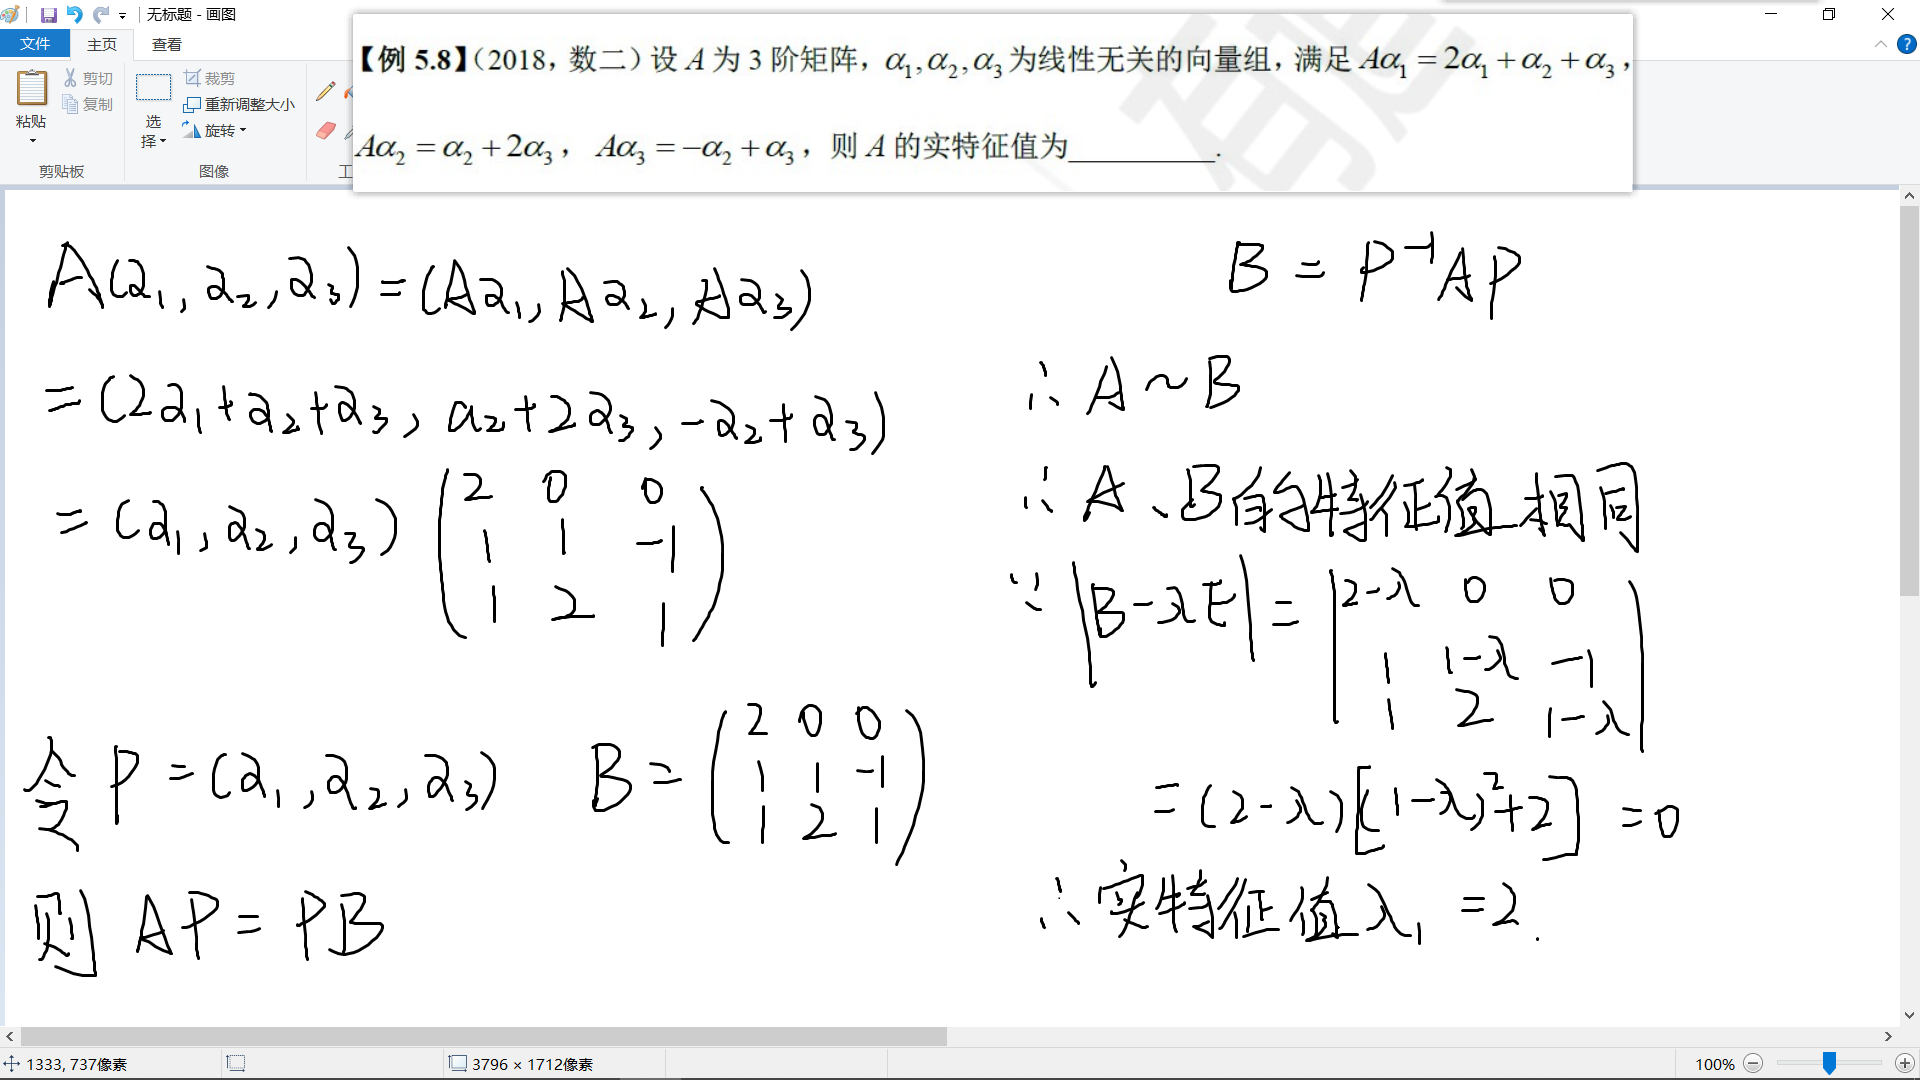 无标题 - 画图
文件 主页 查看
粘贴 剪切 复制
剪贴板
选择 裁剪 重新调整大小 旋转
图像
【例 5.8】(2018，数二) 设 A 为 3 阶矩阵，α₁,α₂,α₃ 为线性无关的向量组，满足 Aα₁ = 2α₁ + α₂ + α₃，
Aα₂ = α₂ + 2α₃， Aα₃ = −α₂ + α₃，则 A 的实特征值为__________.
A(α₁,α₂,α₃) = (Aα₁, Aα₂, Aα₃)
= (2α₁+α₂+α₃, α₂+2α₃, -α₂+α₃)
= (α₁,α₂,α₃) (2 0 0
1 1 -1
1 2 1)
令 P = (α₁,α₂,α₃) B = (2 0 0
1 1 -1
1 2 1)
则 AP = PB
B = P⁻¹AP
∴ A ~ B
∴ A、B的特征值相同
∵ |B-λE| = |2-λ 0 0
1 1-λ -1
1 2 1-λ|
= (2-λ)[(1-λ)²+2] = 0
∴ 实特征值 λ₁ = 2.
1333, 737像素
3796 × 1712像素
100%